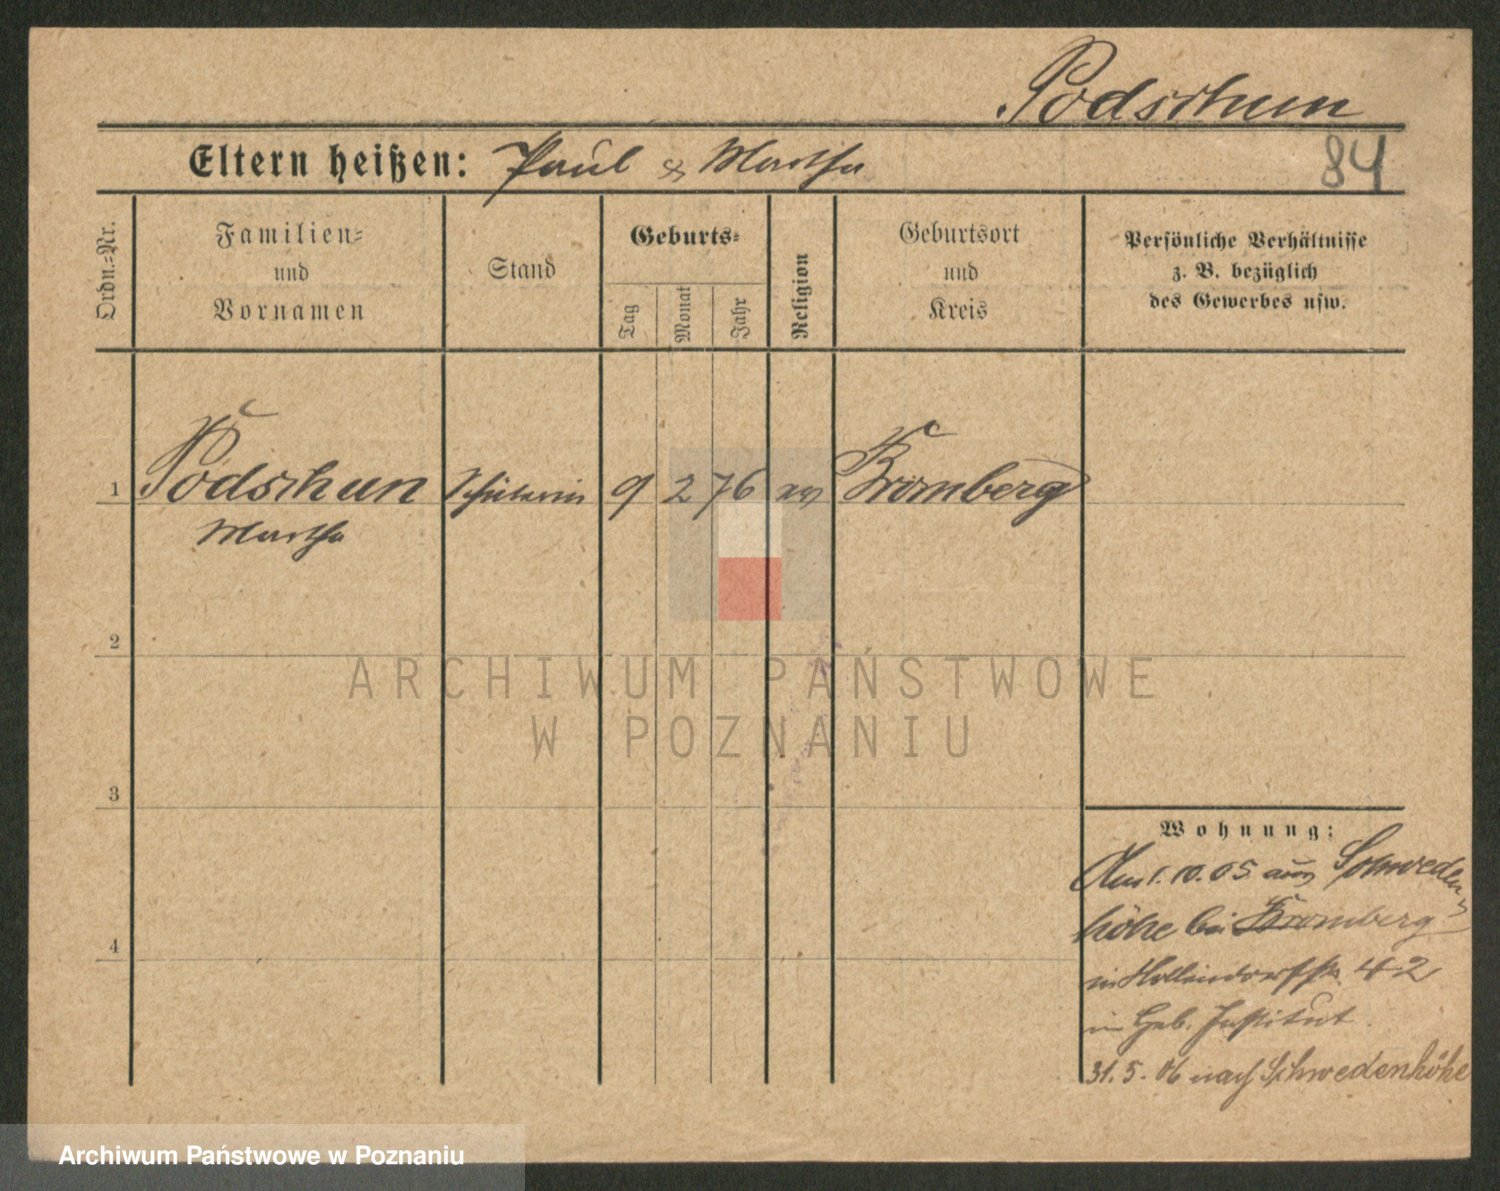 Podschun
Eltern heißen: Paul & Martha
84
Ordn.-Nr.
Familien-
und
Vornamen
Stand
Geburts-
Tag
Monat
Jahr
Religion
Geburtsort
und
Kreis
Persönliche Verhältnisse
z. B. bezüglich
des Gewerbes usw.
1 Podschun Schülerin 9 2 76 ev Bromberg
Martha
2
3
4
Wohnung:
Am 1.10.05 aus Schweden
höhe bei Bromberg
in 42
in Heb. Institut
31.5.06 nach Schwedenhöhe
ARCHIWUM PAŃSTWOWE
W POZNANIU
Archiwum Państwowe w Poznaniu